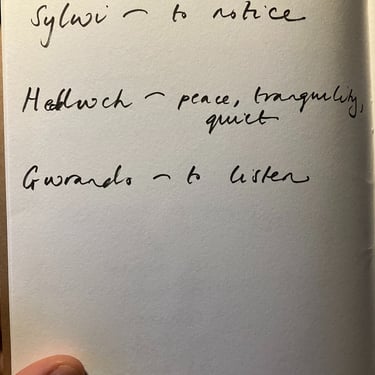 Sylwi - to notice
Heddwch - peace, tranquility,
quiet
Gwrando - to listen